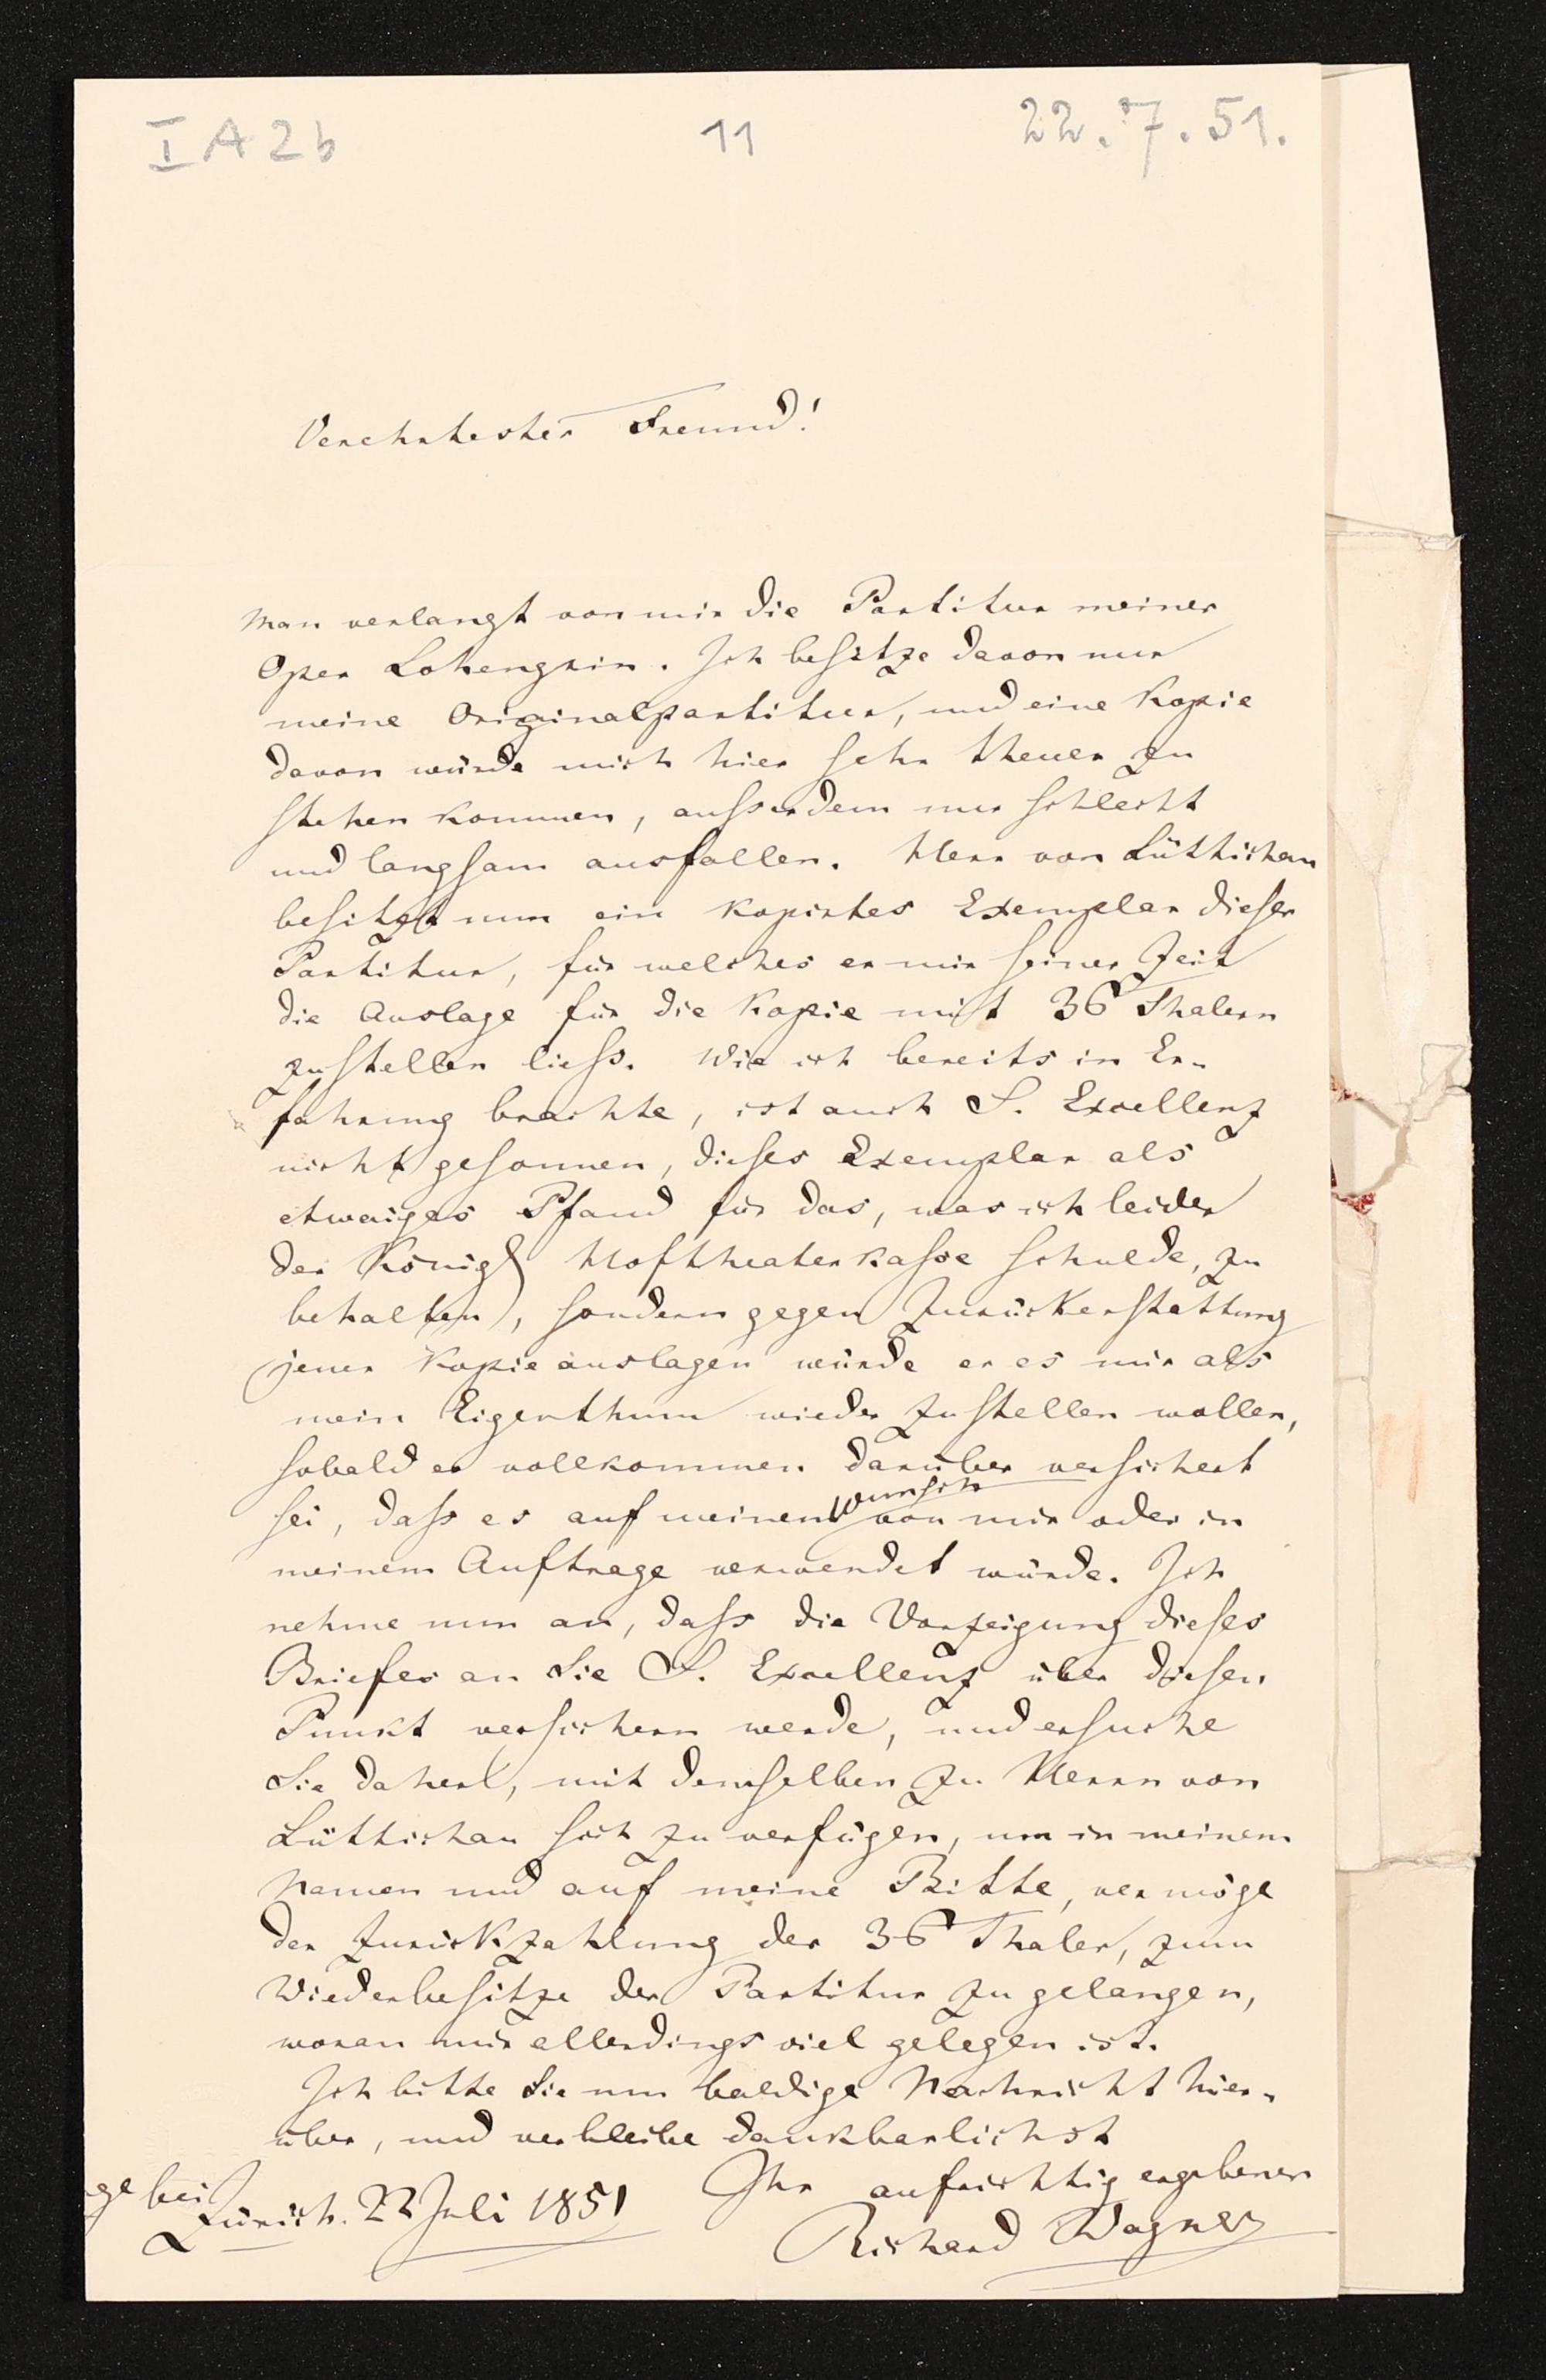 I A 2 b
11
22.7.51.
Verehrtester Freund!
Man verlangt von mir die Partitur meiner
Oper Lohengrin. Ich besitze davon nur
meine Originalpartitur, und eine Kopie
davon würde mich hier sehr theuer zu
stehen kommen, ausserdem nur schlecht
und langsam ausfallen. Herr von Lüttichau
besitzt nun ein kopirtes Exemplar dieser
Partitur, für welches er mir seiner Zeit
die Auslage für die Kopie mit 36 Thalern
zustellen liess. Wie ich bereits in Er-
fahrung brachte, ist auch S. Excellenz
nicht gesonnen, dieses Exemplar als
etwaiges Pfand für das, was ich leider
der Königl Hoftheaterkasse schulde, zu
behalten, sondern gegen Zurückerstattung
jener Kopieauslagen würde er es mir als
mein Eigenthum wieder zustellen wollen,
sobald er vollkommen darüber versichert
sei, dass es auf meinen Wunsch von mir oder in
meinem Auftrage verwendet würde. Ich
nehme nun an, dass die Vorzeigung dieses
Briefes an Sie S. Excellenz über diesen
Punkt versichern werde, und ersuche
Sie daher, mit demselben zu Herrn von
Lüttichau sich zu verfügen, um in meinem
Namen und auf meine Bitte, vermöge
der Zurückzahlung der 36 Thaler, zum
Wiederbesitze der Partitur zu gelangen,
woran mir allerdings viel gelegen ist.
Ich bitte Sie um baldige Nachricht hier-
über, und verbleibe dankbarlichst
Ihr aufrichtig ergebener
ge bei
Zürich. 22 Juli 1851
Richard Wagner